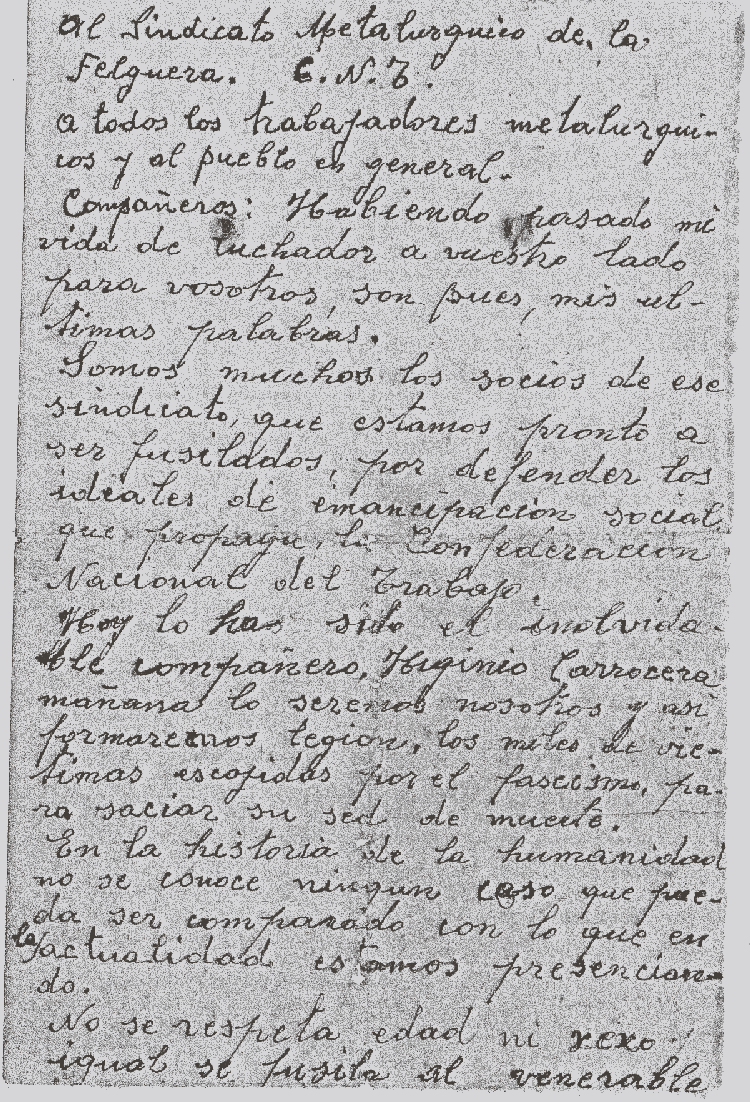 Al Sindicato Metalurguico de la
Felguera. C.N.T.
a todos los trabajadores metalurgui-
cos y al pueblo en general.
Compañeros: Habiendo pasado mi
vida de luchador a vuestro lado
para vosotros, son pues, mis ul-
timas palabras.
Somos muchos los socios de ese
sindicato, que estamos pronto a
ser fusilados, por defender los
ideales de emancipacion social
que propage, la Confederacion
Nacional del Trabajo.
Hoy lo has sido el inolvida-
ble compañero, Higinio Carrocera
mañana lo seremos nosotros y asi
formaremos legion, los miles de vic-
timas escojidas por el fascismo, pa-
ra saciar su sed de muerte.
En la historia de la humanidad
no se conoce ningun caso que pue-
da ser comparado con lo que en
la actualidad estamos presencian-
do.
No se respeta edad ni sexo
igual se fusila al venerable